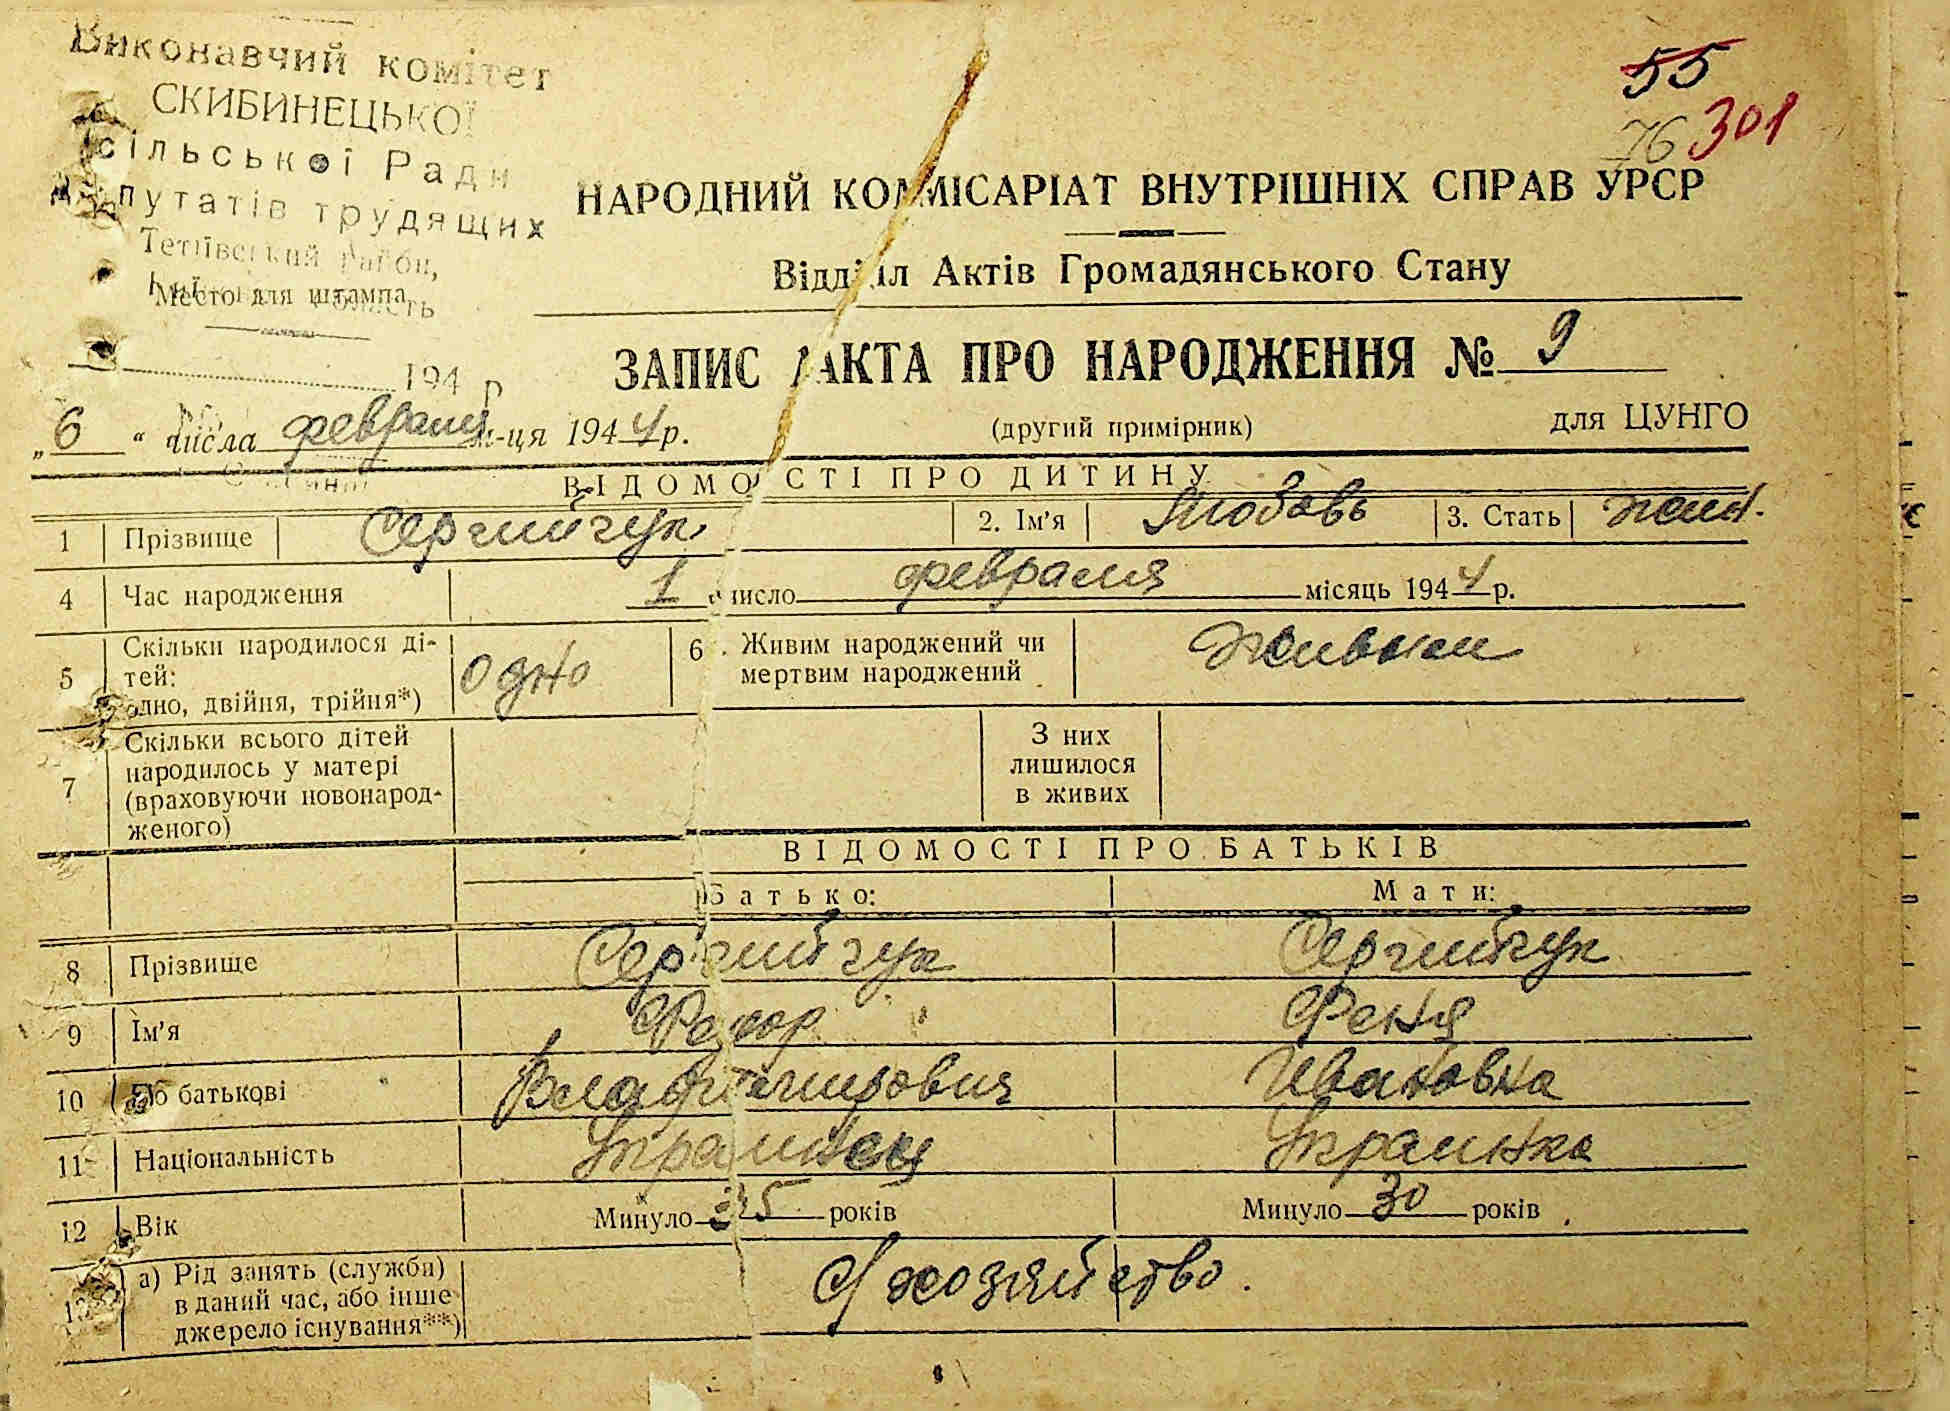 Виконавчий комітет
СКИБИНЕЦЬКОЇ
сільської Ради
депутатів трудящих
Тетіївський район,
Место для штампа
55
76 301
НАРОДНИЙ КОММІСАРІАТ ВНУТРІШНІХ СПРАВ УРСР
Відділ Актів Громадянського Стану
ЗАПИС АКТА ПРО НАРОДЖЕННЯ № 9
194 р
„6“ числа февраля м-ця 1944 р.
(другий примірник)
для ЦУНГО
ВІДОМОСТІ ПРО ДИТИНУ
1 Прізвище Сергийчук 2. Ім'я Любовь 3. Стать жен.
4 Час народження 1 число февраля місяць 1944 р.
5 Скільки народилося ді-
тей:
одно, двійня, трійня*) одно
6. Живим народжений чи
мертвим народжений Живым
7 Скільки всього дітей
народилось у матері
(враховуючи новонарод-
женого)
З них
лишилося
в живих
ВІДОМОСТІ ПРО БАТЬКІВ
Батько: Мати:
8 Прізвище Сергийчук Сергийчук
9 Ім'я Феня
10 По батькові Владимирович Ивановна
11 Національність Украинец Украинка
12 Вік Минуло 35 років Минуло 30 років
13 а) Рід занять (служби)
в даний час, або інше
джерело існування**) С/хозяйство.